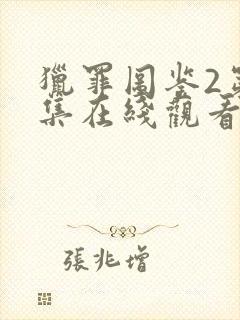 獵罪圖鉴2第
集在綫觀看
張兆增